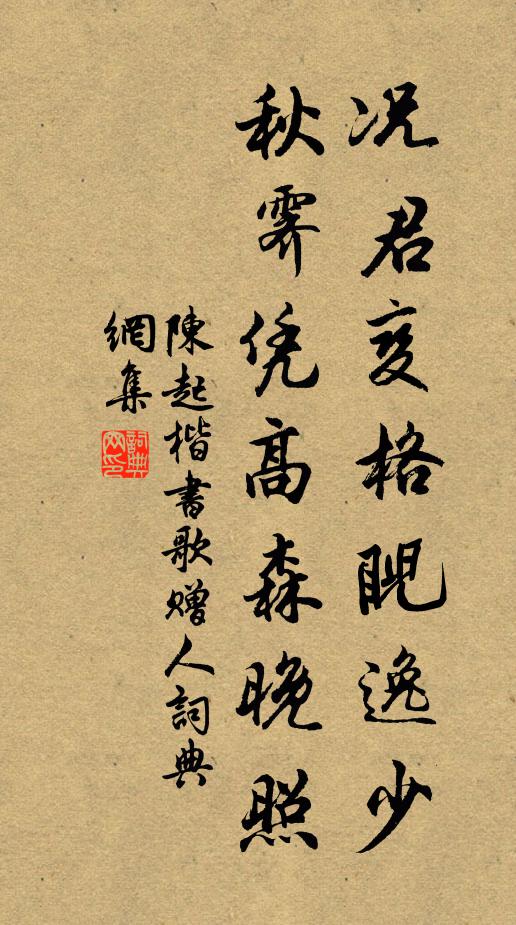 况君変格睨逸少
秋霁凭高森晚照
陳起楷書歌贈人詞典
網集
詞典
网印